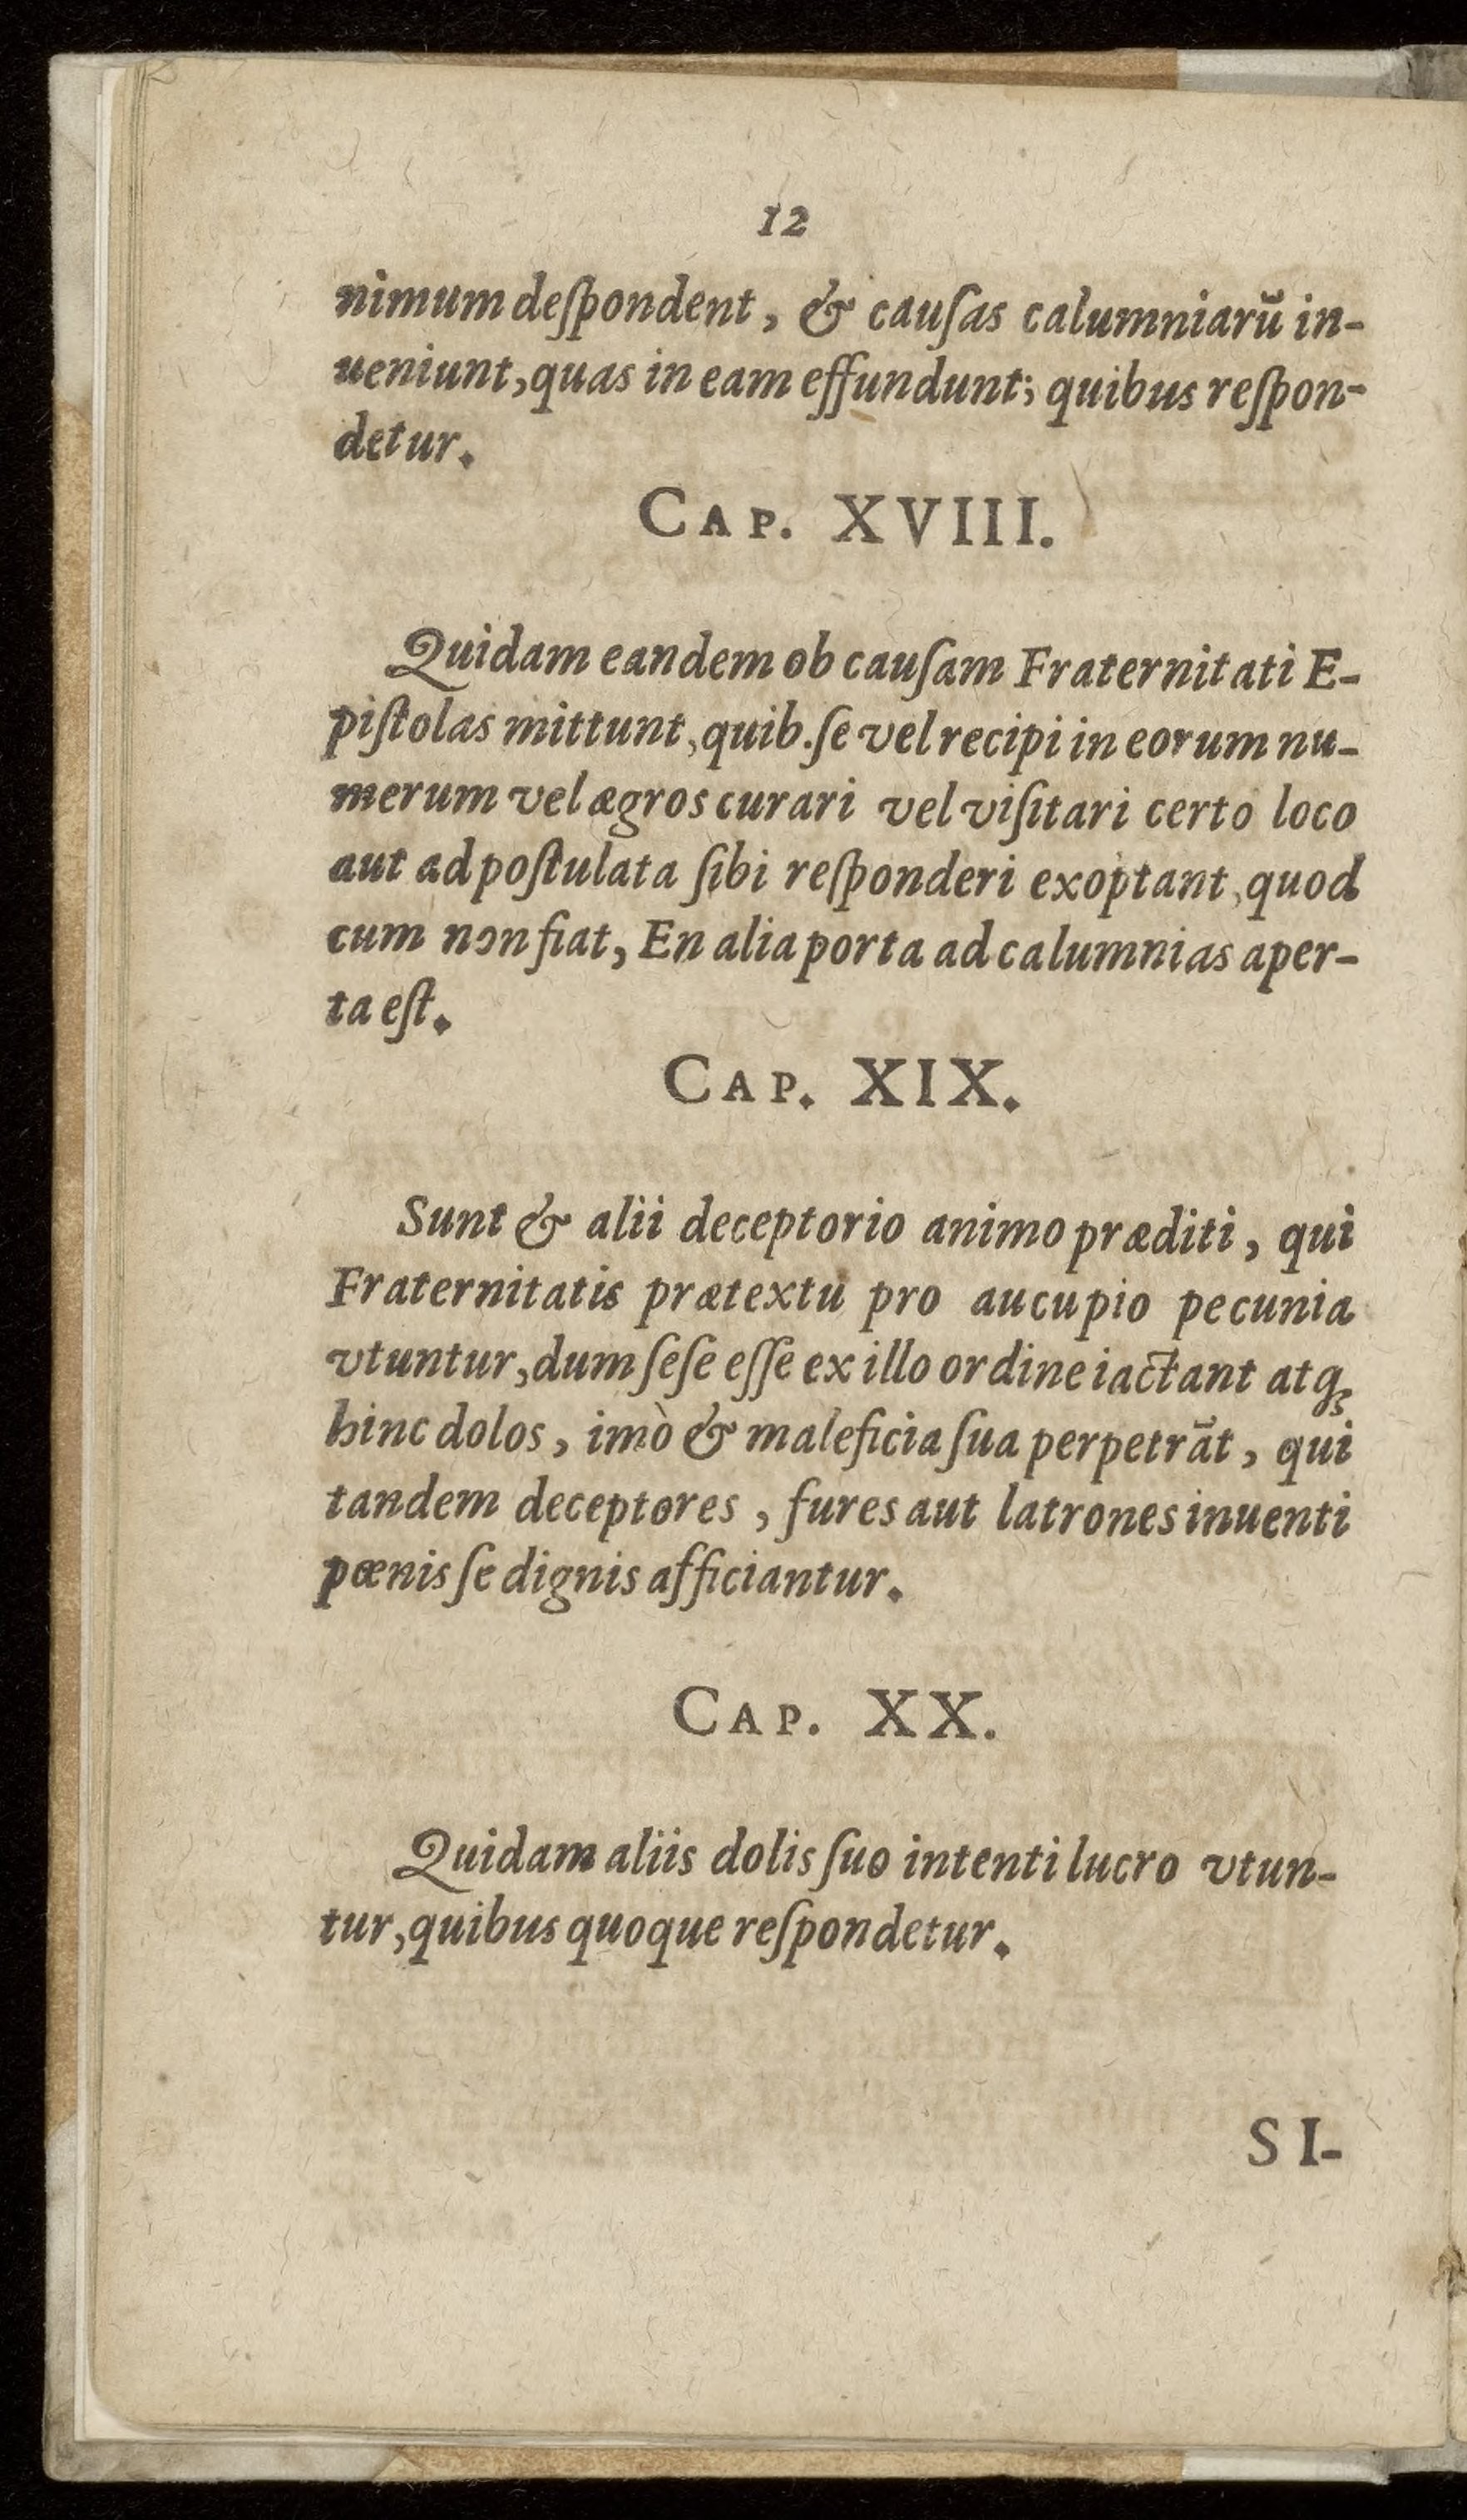 12
nimum deſpondent, & cauſas calumniarū in-
ueniunt, quas in eam effundunt; quibus reſpon-
detur.
CAP. XVIII.
Quidam eandem ob cauſam Fraternitati E-
piſtolas mittunt, quib. ſe vel recipi in eorum nu-
merum vel ægros curari vel viſitari certo loco
aut ad poſtulata ſibi reſponderi exoptant, quod
cum non fiat, En alia porta ad calumnias aper-
ta eſt.
CAP. XIX.
Sunt & alii deceptorio animo præditi, qui
Fraternitatis prætextu pro aucupio pecunia
vtuntur, dum ſeſe eſſe ex illo ordine iactant atq;
hinc dolos, imò & maleficia ſua perpetrāt, qui
tandem deceptores, fures aut latrones inuenti
pœnis ſe dignis afficiantur.
CAP. XX.
Quidam aliis dolis ſuo intenti lucro vtun-
tur, quibus quoque reſpondetur.
SI-